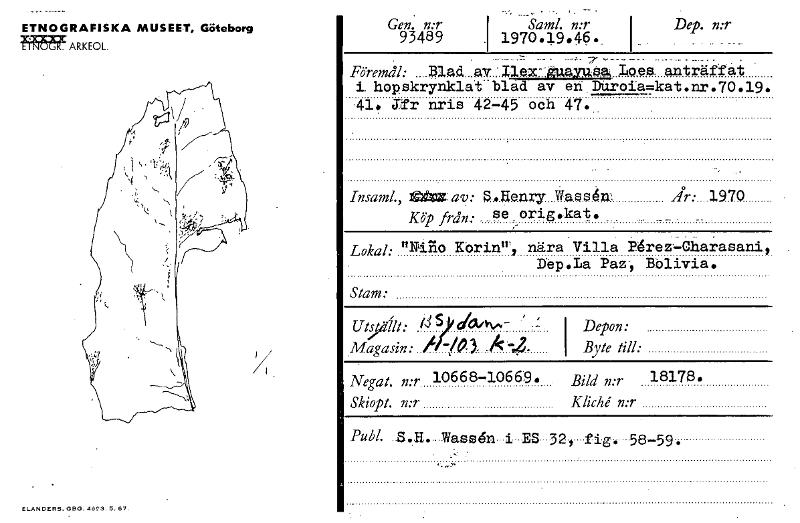 ETNOGRAFISKA MUSEET, Göteborg
ETNOGR. ARKEOL.
1/1
ELANDERS, GBG. 4693. 5. 67.
Gen. n:r Saml. n:r Dep. n:r
93489 1970.19.46.
Föremål: Blad av Ilex guayusa Loes anträffat
i hopskrynklat blad av en Duroia=kat.nr.70.19.
41. Jfr nris 42-45 och 47.
Insaml., av: S.Henry Wassén År: 1970
Köp från: se orig.kat.
Lokal: "Niño Korin", nära Villa Pérez-Charasani,
Dep.La Paz, Bolivia.
Stam:
Utställt: Sydam- Depon:
Magasin: H-103 K-2 Byte till:
Negat. n:r 10668-10669. Bild n:r 18178.
Skiopt. n:r Kliché n:r
Publ. S.H. Wassén i ES 32, fig. 58-59.